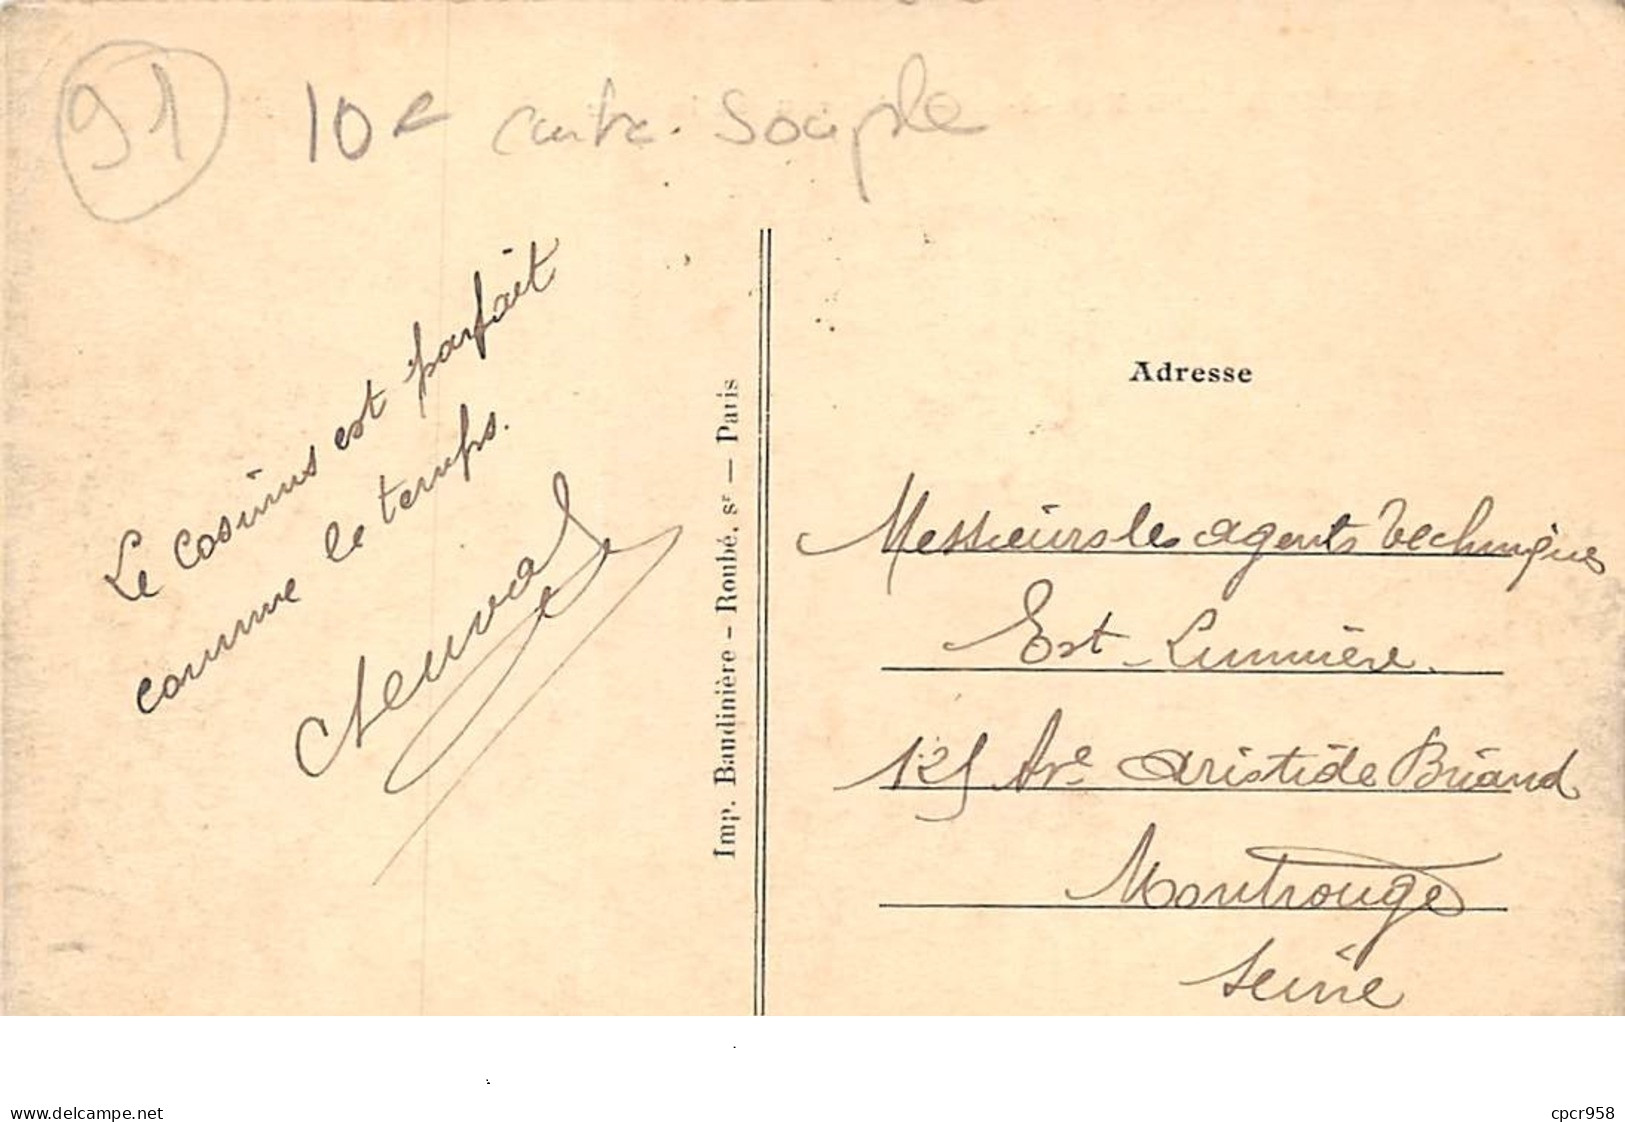 91
10e carte souple
Le cosinus est parfait
comme le temps.
Imp. Baudinière - Roubé. sr — Paris
Adresse
Messieurs les agents techniques
Est-Lumière.
125 Ave Aristide Briand
Montrouge
Seine
www.delcampe.net
cpcr958